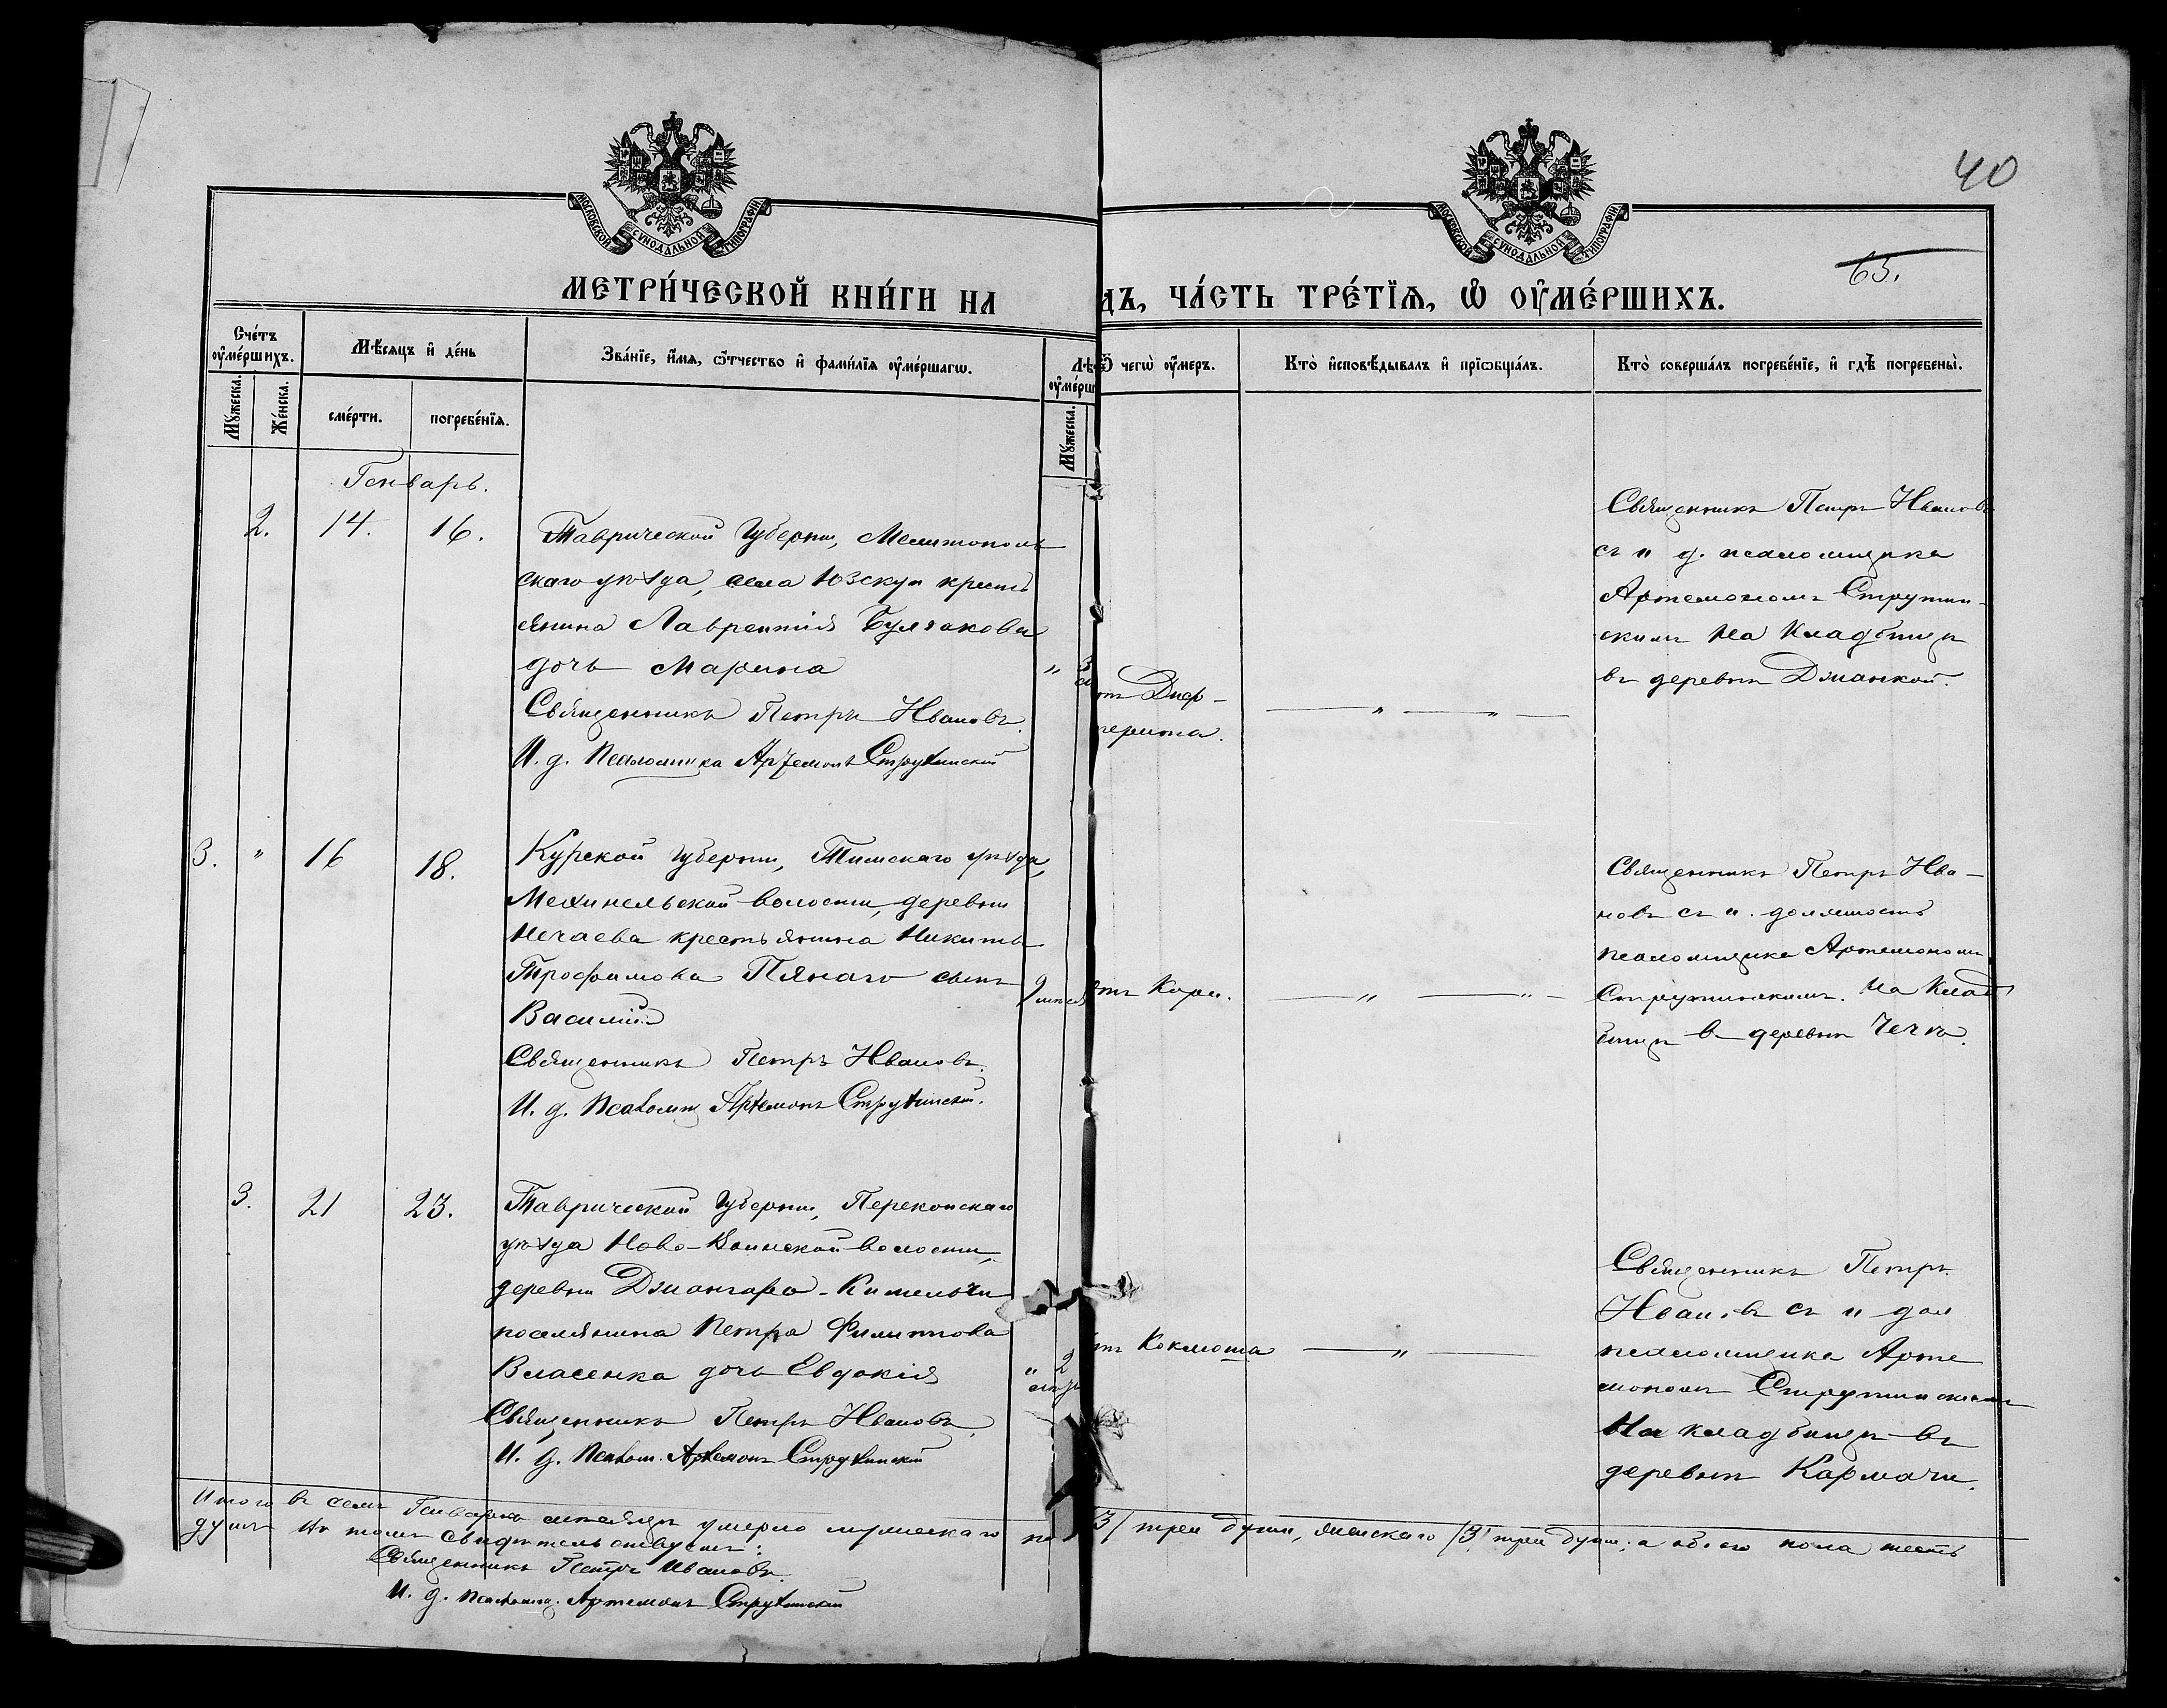 40
65.
МОСКОВСКОЙ СѴНОДАЛЬНОЙ ТИПОГРАФІИ
МОСКОВСКОЙ СѴНОДАЛЬНОЙ ТИПОГРАФІИ
МЕТРИ́ЧЕСКОЙ КНИ́ГИ НА
ДЪ, ЧА́СТЬ ТРЕ́ТЇѦ, Ѡ҆ ОУ҆МЕ́РШИХЪ.
Сче́тъ оу҆ме́ршихъ.
Мꙋ́жеска.
Же́нска.
Мѣ́сѧцъ и҆ де́нь
сме́рти.
погребе́нїѧ.
Зва́нїе, и҆́мѧ, ѻ҆́тчество и҆ фами́лїѧ оу҆ме́ршагѡ.
Лѣ
оу҆ме́рш
Мꙋ́жеска.
Ѿ чегѡ̀ оу҆́меръ.
Кто̀ и҆сповѣ́дывалъ и҆ прїѡбща́лъ.
Кто̀ соверша́лъ погребе́нїе, и҆ гдѣ̀ погребены̀.
Генварь.
2. 14. 16.
Таврической Губерніи, Мелитополь
скаго уѣзда, села Юзкуи кресть
янина Лаврентія Булгакова
дочь Марина
Священникъ Петръ Ивановъ.
И. д. Псаломщика Артемонъ Струтинскій
" 3
отъ Диф-
терита.
" "
Священникъ Петръ Ивановъ
съ и д. псаломщика
Артемономъ Струтин-
скимъ на Кладбищѣ
въ деревнѣ Джанкой.
3. " 16 18.
Курской Губерніи, Тимскаго уѣзда,
волости, деревни
Нечаева крестьянина Никиты
Трофимова Пянаго сынъ
Василій
Священникъ Петръ Ивановъ.
И. д. Псаломщ Артемонъ Струтинскій.
отъ Кори.
" "
Священникъ Петръ Ива-
новъ съ и. должность
псаломщика Артемономъ
Струтинскимъ. На Клад
бищѣ в деревнѣ
3. 21 23.
Таврической Губерніи, Перекопскаго
уѣзда Ново- волости,
деревни Джангара-
поселянина Петра Филиппова
Власенка дочь Евдокія
Священникъ Петръ Ивановъ.
И. д. Псалом. Артемонъ Струтинскій
" 2
отъ Коклюша
"
Священникъ Петръ
Ивановъ съ и дол
псаломщика Арте
мономъ Струтинскимъ
На кладбищѣ въ
деревнѣ Кармачи.
Итого въ семъ Генварѣ мѣсяцѣ умерло мужескаго по /3/ три души, женскаго /3/ три души; а обоего пола шесть
душъ Въ томъ свидѣтельствуемъ:
Священникъ Петръ Ивановъ.
И. д. Псаломщ. Артемонъ Струтинскій